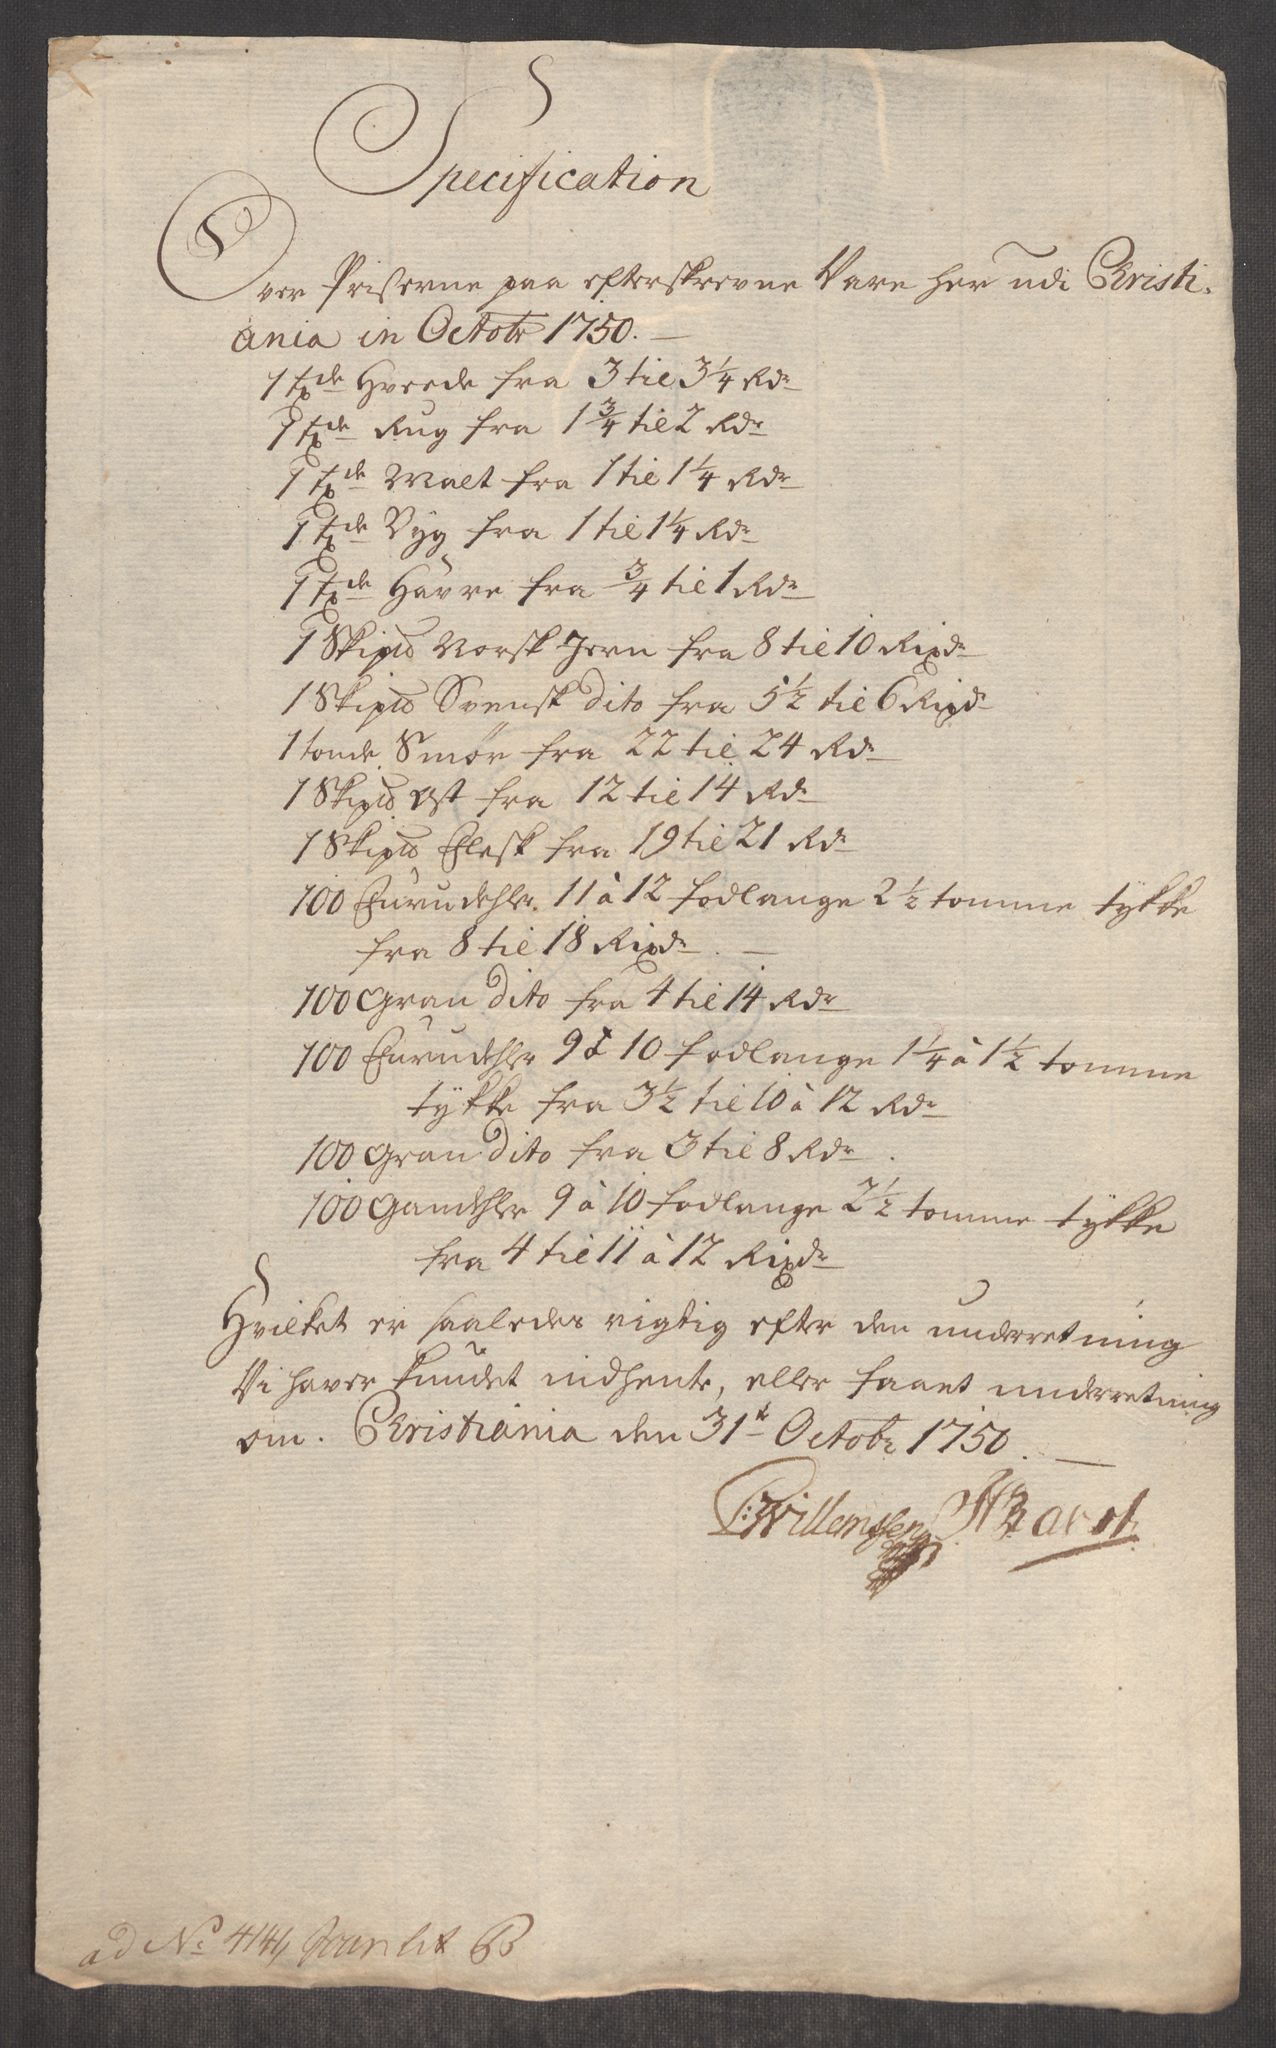 Specification
Over Priserne paa efterskrevne Vare her udi Christi-
ania in Octobr 1750. —
1 Tde Hvede fra 3 til 3 1/4 Rdr
1 Tde Rug fra 1 3/4 til 2 Rdr
1 Tde Malt fra 1 til 1 1/4 Rdr
1 Tde Byg fra 1 til 1 1/4 Rdr
1 Tde Havre fra 3/4 til 1 Rdr
1 Skipd Norsk Jern fra 8 til 10 Rixdr
1 Skipd Svensk dito fra 5 1/2 til 6 Rixdr
1 tonde Smør fra 22 til 24 Rdr
1 Skipd Ost fra 12 til 14 Rdr
1 Skipd Flesk fra 19 til 21 Rdr
100 Furudehler 11 à 12 fodlange 2 1/2 tomme tykke
fra 8 til 18 Rixdr —
100 Gran dito fra 4 til 14 Rdr
100 Furudehler 9 à 10 fodlange 1 1/4 à 1 1/2 tomme
tykke fra 3 1/2 til 10 à 12 Rdr
100 Gran dito fra 3 til 8 Rdr.
100 9 à 10 fodlange 2 1/2 tomme tykke
fra 4 til 11 à 12 Rixdr
Hvilket er saaledes rigtig efter den underretning
Vi haver kundet indhente, eller faaet underretning
om. Christiania den 31t Octobr 1750. —
Willemsen
ad No